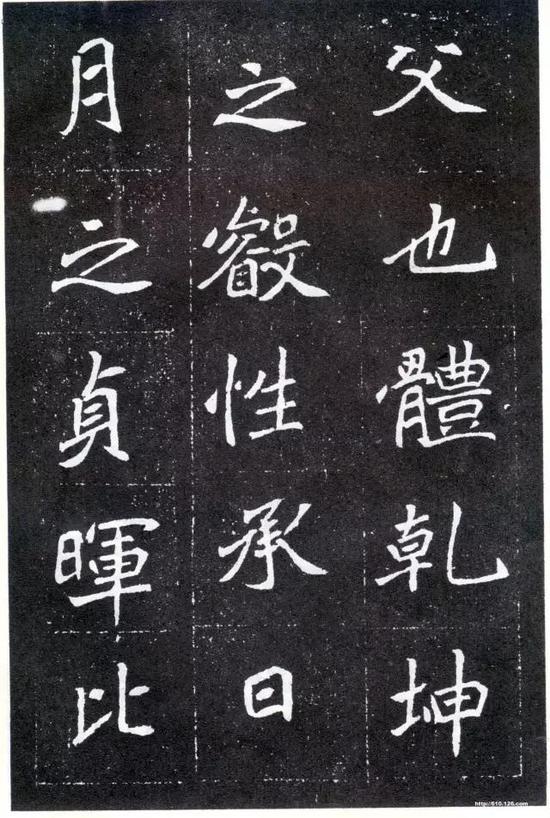 父也體乾坤
之叡性承日
月之貞暉比
http://610.126.com